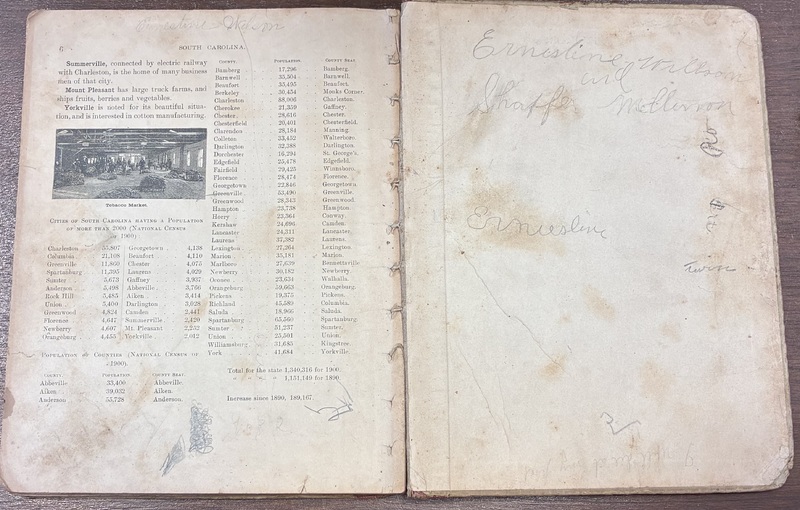 Ernestine
6
SOUTH CAROLINA.
Summerville, connected by electric railway
with Charleston, is the home of many business
men of that city.
Mount Pleasant has large truck farms, and
ships fruits, berries and vegetables.
Yorkville is noted for its beautiful situa-
tion, and is interested in cotton manufacturing.
Tobacco Market.
CITIES OF SOUTH CAROLINA HAVING A POPULATION
OF MORE THAN 2000 (NATIONAL CENSUS
OF 1900).
Charleston 55,807 Georgetown 4,138
Columbia 21,108 Beaufort 4,110
Greenville 11,860 Chester 4,075
Spartanburg 11,395 Laurens 4,029
Sumter 5,673 Gaffney 3,937
Anderson 5,498 Abbeville 3,766
Rock Hill 5,485 Aiken 3,414
Union 5,400 Darlington 3,028
Greenwood 4,824 Camden 2,441
Florence 4,647 Summerville 2,420
Newberry 4,607 Mt. Pleasant 2,252
Orangeburg 4,455 Yorkville 2,012
POPULATION OF COUNTIES (NATIONAL CENSUS OF
1900).
COUNTY. POPULATION. COUNTY SEAT.
Abbeville 33,400 Abbeville.
Aiken 39,032 Aiken.
Anderson 55,728 Anderson.
COUNTY. POPULATION. COUNTY SEAT.
Bamberg 17,296 Bamberg.
Barnwell 35,504 Barnwell.
Beaufort 35,495 Beaufort.
Berkeley 30,454 Monks Corner.
Charleston 88,006 Charleston.
Cherokee 21,359 Gaffney.
Chester 28,616 Chester.
Chesterfield 20,401 Chesterfield.
Clarendon 28,184 Manning.
Colleton 33,452 Walterboro.
Darlington 32,388 Darlington.
Dorchester 16,294 St. George's.
Edgefield 25,478 Edgefield.
Fairfield 29,425 Winnsboro.
Florence 28,474 Florence.
Georgetown 22,846 Georgetown.
Greenville 53,490 Greenville.
Greenwood 28,343 Greenwood.
Hampton 23,738 Hampton.
Horry 23,364 Conway.
Kershaw 24,696 Camden.
Lancaster 24,311 Lancaster.
Laurens 37,382 Laurens.
Lexington 27,264 Lexington.
Marion 35,181 Marion.
Marlboro 27,639 Bennettsville.
Newberry 30,182 Newberry.
Oconee 23,634 Walhalla.
Orangeburg 59,663 Orangeburg.
Pickens 19,375 Pickens.
Richland 45,589 Columbia.
Saluda 18,966 Saluda.
Spartanburg 65,560 Spartanburg.
Sumter 51,237 Sumter.
Union 25,501 Union.
Williamsburg 31,685 Kingstree.
York 41,684 Yorkville.
Total for the state 1,340,316 for 1900.
" " " 1,151,149 for 1890.
Increase since 1890, 189,167.
Ernestine
and
Shaffer
Ernestine